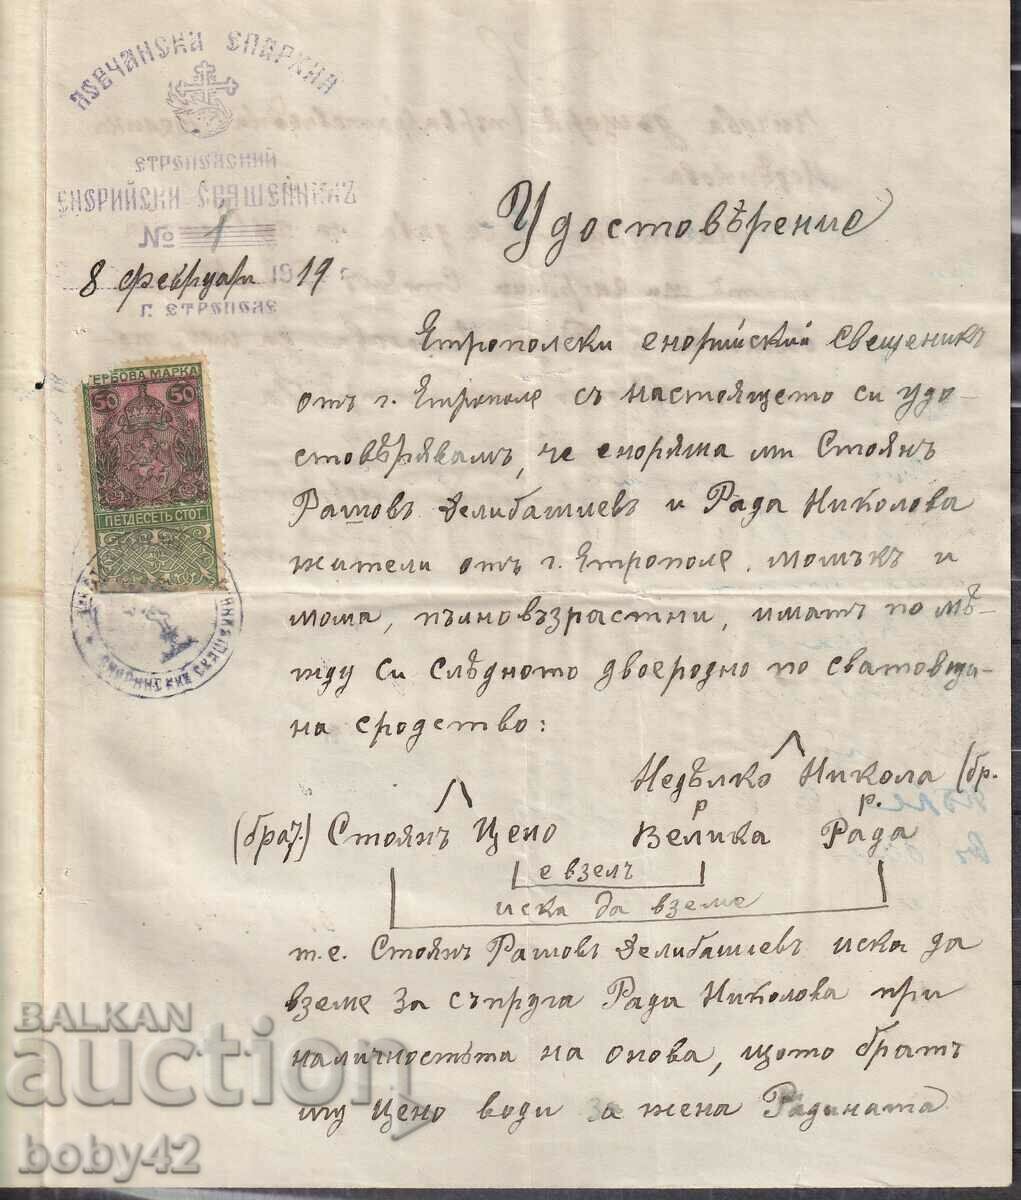 ЛОВЧАНСКИ ЕПАРХИИ
ЕТРОПОЛСКИЙ
ЕНОРИЙСКИ СВЯЩЕННИКЪ
№ 1
8 Февруари 1919
Г. ЕТРОПОЛЕ
Удостовѣрение
ГЕРБОВА МАРКА
50 50
ПЕТДЕСЕТЬ СТОТ.
Етрополски енорийский свещеникъ
отъ г. Етрополе съ настоящето си удо-
стовѣрявамъ, че еноряша ми Стоянъ
Рашовъ Делибашиевъ и Рада Николова
жители отъ г. Етрополе, момъкъ и
мома, пълновъзрастни, иматъ по мѣ-
жду си слѣдното двоеродно по сватовщи-
на сродство:
Недѣлко Никола (бр.
р. р.
(брат.) Стоянъ Цено Велика Рада
е взелъ
иска да вземе
т.е. Стоянъ Рашовъ Делибашиевъ иска да
вземе за съпруга Рада Николова при
наличностьта на онова, щото братъ
му Цено води за жена Радината
BALKAN
auction
boby42